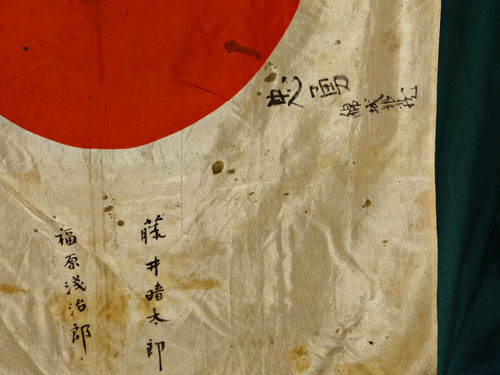 忠勇
藤井晴太郎
福原浅治郎